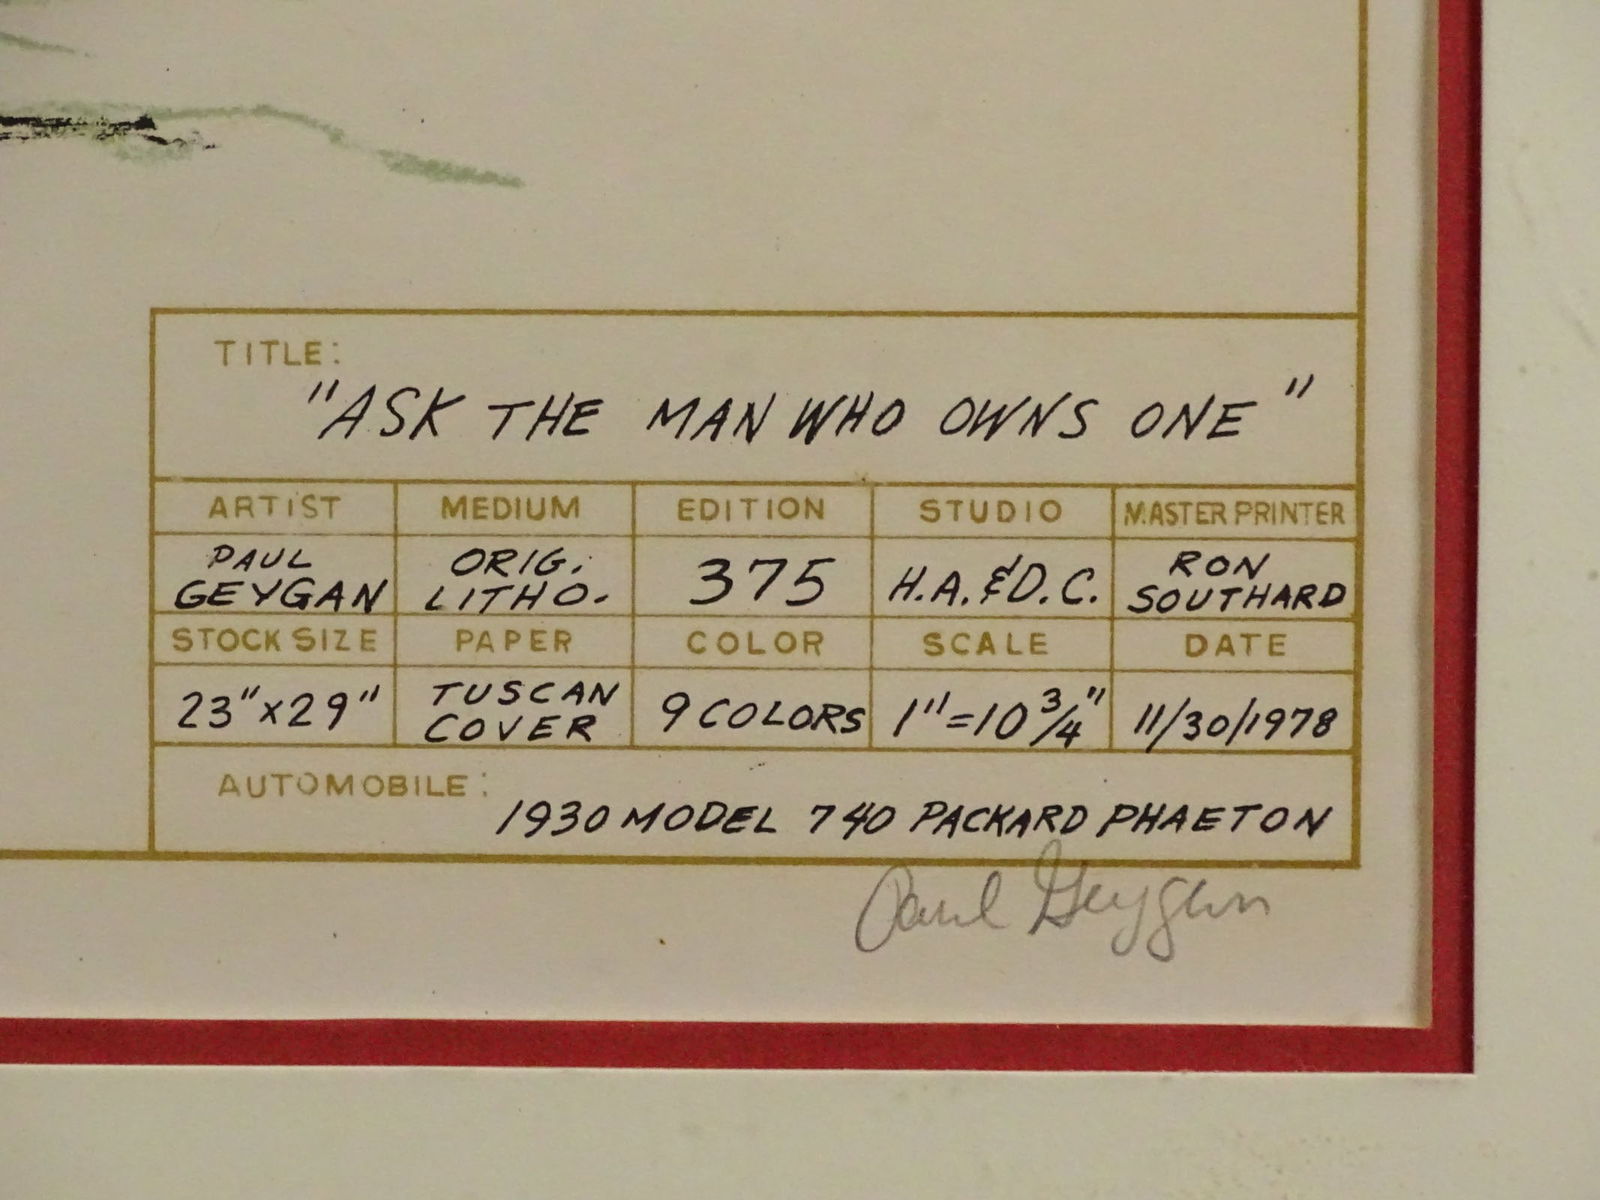 TITLE:
"ASK THE MAN WHO OWNS ONE"
ARTIST MEDIUM EDITION STUDIO MASTER PRINTER
PAUL GEYGAN ORIG. LITHO. 375 H.A.&D.C. RON SOUTHARD
STOCK SIZE PAPER COLOR SCALE DATE
23"x29" TUSCAN COVER 9 COLORS 1"=10 3/4" 11/30/1978
AUTOMOBILE:
1930 MODEL 740 PACKARD PHAETON
Paul Geygan